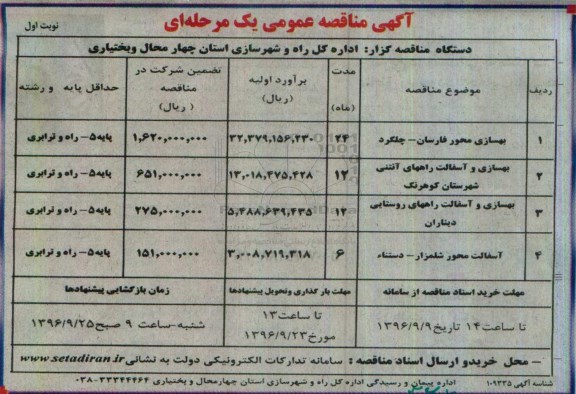 آگهی مناقصه عمومی یک مرحله‌ای
نوبت اول
دستگاه مناقصه گزار: اداره کل راه و شهرسازی استان چهار محال وبختیاری
ردیف موضوع مناقصه مدت (ماه) برآورد اولیه (ریال) تضمین شرکت در مناقصه (ریال) حداقل پایه و رشته
۱ بهسازی محور فارسان- چلگرد ۲۴ ۳۲,۳۷۹,۱۵۶,۲۳۰ ۱,۶۲۰,۰۰۰,۰۰۰ پایه۵- راه و ترابری
۲ بهسازی و آسفالت راههای آتتنی شهرستان کوهرنگ ۱۲ ۱۳,۰۱۸,۴۷۵,۴۲۸ ۶۵۱,۰۰۰,۰۰۰ پایه۵- راه و ترابری
۳ بهسازی و آسفالت راههای روستایی دیناران ۱۲ ۵,۴۸۸,۶۳۹,۴۳۵ ۲۷۵,۰۰۰,۰۰۰ پایه۵- راه و ترابری
۴ آسفالت محور شلمزار- دستناء ۶ ۳,۰۰۸,۷۱۹,۳۱۸ ۱۵۱,۰۰۰,۰۰۰ پایه۵- راه و ترابری
مهلت خرید اسناد مناقصه از سامانه مهلت بار گذاری وتحویل پیشنهادها زمان بازگشایی پیشنهادها
تا ساعت۱۴ تاریخ۱۳۹۶/۹/۹ تا ساعت۱۳ مورخ۱۳۹۶/۹/۲۳ شنبه-ساعت ۹ صبح۱۳۹۶/۹/۲۵
– محل خریدو ارسال اسناد مناقصه : سامانه تدارکات الکترونیکی دولت به نشانی www.setadiran.ir
شناسه آگهی ۱۰۹۳۳۵ اداره پیمان و رسیدگی اداره کل راه و شهرسازی استان چهارمحال و بختیاری ۳۳۳۴۴۴۶۴-۰۳۸